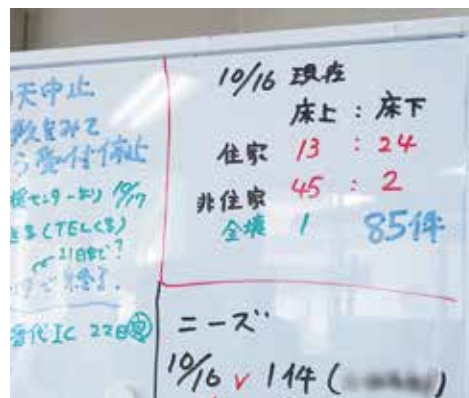 天中止
をみて
受付停止
センターより 10/17
(TELくる)
21日まで?
終了.
普代IC 22日
10/16 現在
床上 : 床下
住家 13 : 24
非住家 45 : 2
全壊 1 85件
ニーズ
10/16 v 1件 (